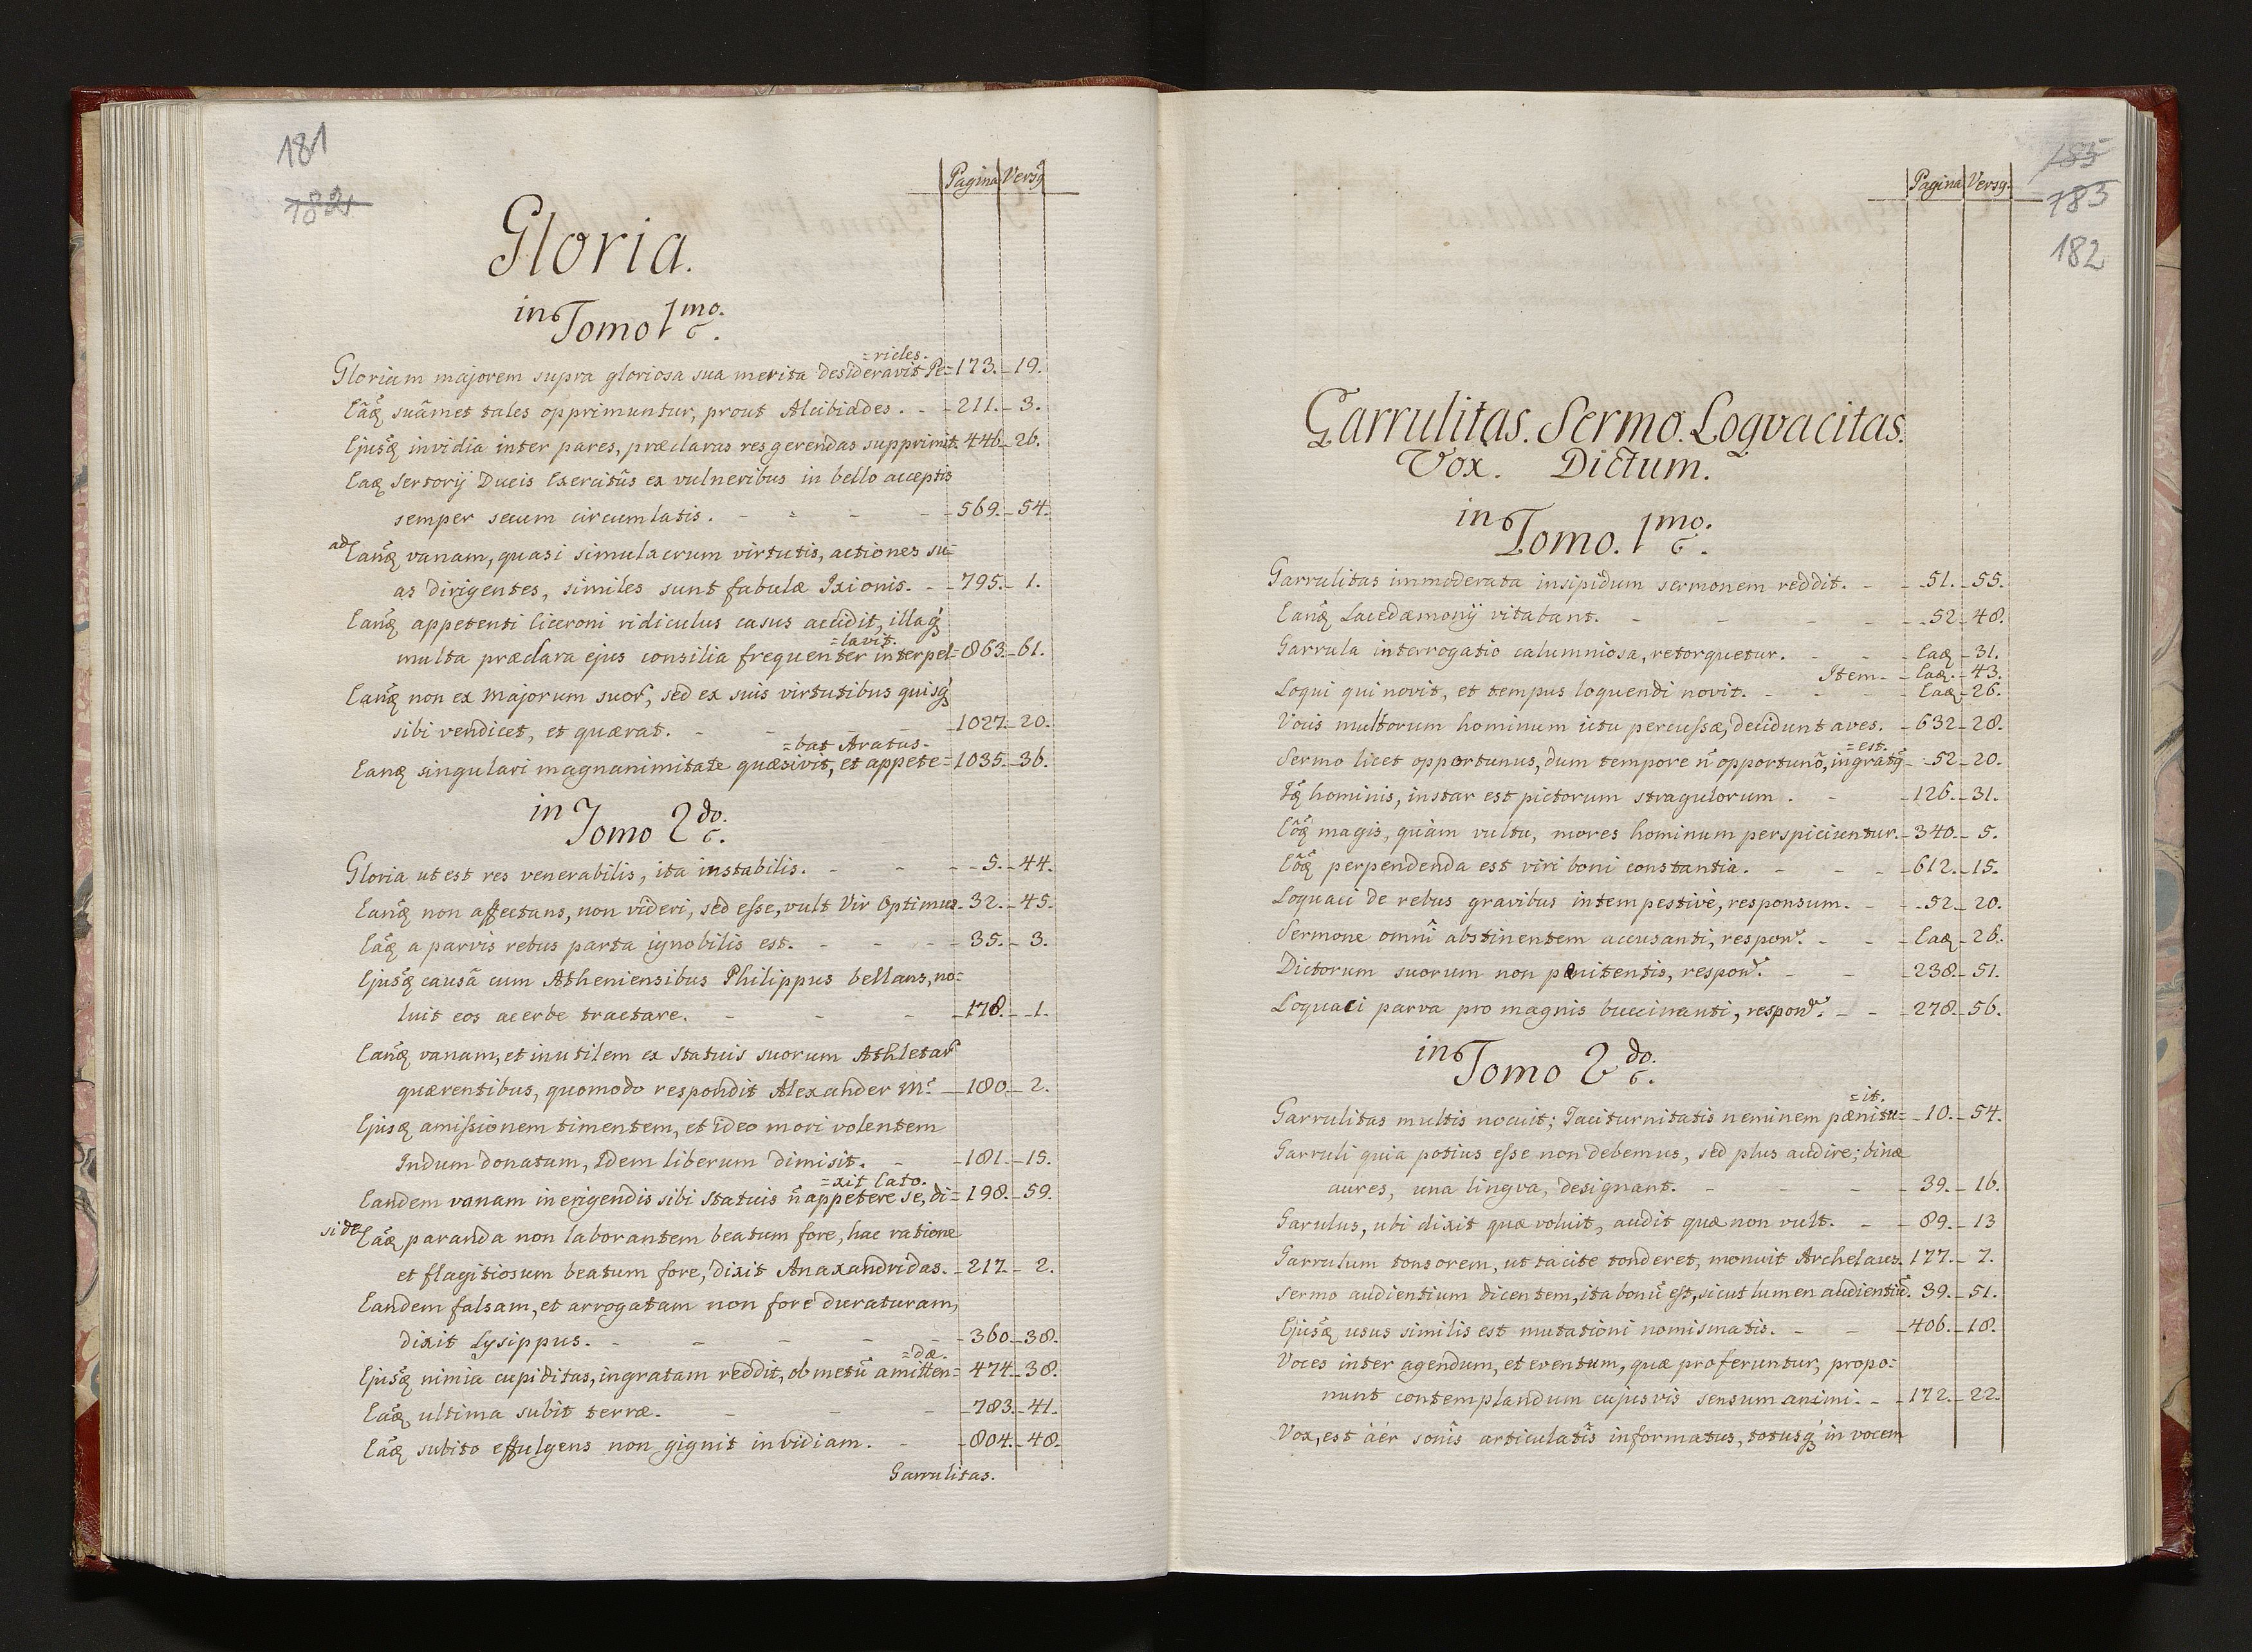 181
182
Pagina Versq
Gloria.
in Tomo 1mo.
=ricles.
Gloriam majorem supra gloriosa sua merita desideravit Pe= 173. 19.
Eãq suãmet tales opprimuntur, prout Alcibiades. - - 211. 3.
Ejusq invidia inter pares, præclaras res gerendas supprimit. 446. 26.
Eaq Sertorij Ducis Exercitûs ex vulneribus in bello acceptis
semper secum circumlatis. - - - - 569. 54.
ad Eanq vanam, quasi simulacrum virtutis, actiones su=
as dirigentes, similes sunt fabulæ Ixionis. - 795. 1.
Eanq appetenti Ciceroni ridiculus casus accidit, illaq
=lavit.
multa præclara ejus consilia frequenter interpel= 863. 61.
Eanq non ex Majorum suor, sed ex suis virtutibus quisq
sibi vendicet, et quærat. - - - 1027. 20.
=bat Aratus.
Eanq singulari magnanimitate quæsivit, et appete= 1035. 36.
in Tomo 2do.
Gloria ut est res venerabilis, ita instabilis. - - - 5. 44.
Eanq non affectans, non videri, sed esse, vult Vir Optimus 32. 45.
Eãq a parvis rebus parta ignobilis est. - - - 35. 3.
Ejusq causâ cum Atheniensibus Philippus bellans, no=
luit eos acerbe tractare. - - - 178. 1.
Eanq vanam, et inutilem ex Statuis suorum Athletar
quærentibus, quomodo respondit Alexander M. 180. 2.
Ejusq amissionem timentem, et ideo mori volentem
Indum donatum, Idem liberum dimisit. - 181. 15.
=xit Cato.
Eandem vanam in erigendis sibi Statuis ñ appetere se, di= 198. 59.
si de Eãq paranda non laborantem beatum fore, hac ratione
et flagitiosum beatum fore, dixit Anaxandridas. 217. 2.
Eandem falsam, et arrogatam non fore duraturam,
dixit Lysippus. - - - - - 360. 38.
=dæ.
Ejusq nimia cupiditas, ingratam reddit, ob metũ amitten= 474. 38.
Eãq ultima subit terræ. - - - 783. 41.
Eãq subito effulgens non gignit invidiam. - 804. 48.
Garrulitas.
185
183
182
Pagina Versq.
Garrulitas. Sermo. Loqvacitas.
Vox. Dictum.
in Tomo. 1mo.
Garrulitas immoderata insipidum sermonem reddit. - 51. 55.
Eanq Lacedæmonij vitabant. - - - - 52 48.
Garrula interrogatio calumniosa, retorquetur. - - Eaq 31.
Item - Eaq. 43.
Loqui qui novit, et tempus loquendi novit. - - - Eaq 26.
Vocis multorum hominum ictu percussæ, decidunt aves. 632 28.
=est.
Sermo licet opportunus, dum tempore ñ opportunõ, ingratq 52 20.
Iq hominis, instar est pictorum stragulorum. - 126. 31.
Eõq magis, quàm vultu, mores hominum perspiciuntur. 340. 5.
Eõq perpendenda est viri boni constantia. - - - 612. 15.
Loquaci de rebus gravibus intempestivè, responsum. - 52 20.
Sermone omnî abstinentem accusanti, respon. - - Eaq 26.
Dictorum suorum non pænitentis, respon. - - 238. 51.
Loquaci parva pro magnis buccinanti, respon. - - 278. 56.
in Tomo 2do.
=it.
Garrulitas multis nocuit; Taciturnitatis neminem pænitu= 10. 54.
Garruli quia potius esse non debemus, sed plus audire; binæ
aures, una lingva, designant. - - - 39. 16.
Garulus, ubi dixit quæ voluit, audit quæ non vult. - 89. 13
Garrulum tonsorem, ut tacite tonderet, monuit Archelaus. 177. 7.
Sermo audientium dicentem, ita bonũ est, sicut lumen audientiũ. 39. 51.
Ejusq usus similis est mutationi nomismatis. - - 406. 18.
Voces inter agendum, et eventum, quæ proferuntur, propo=
nunt contemplandum cujusvis sensum animi. - 172. 22.
Vox, est àér sonîs articulatîs informatus, totusq in vocem